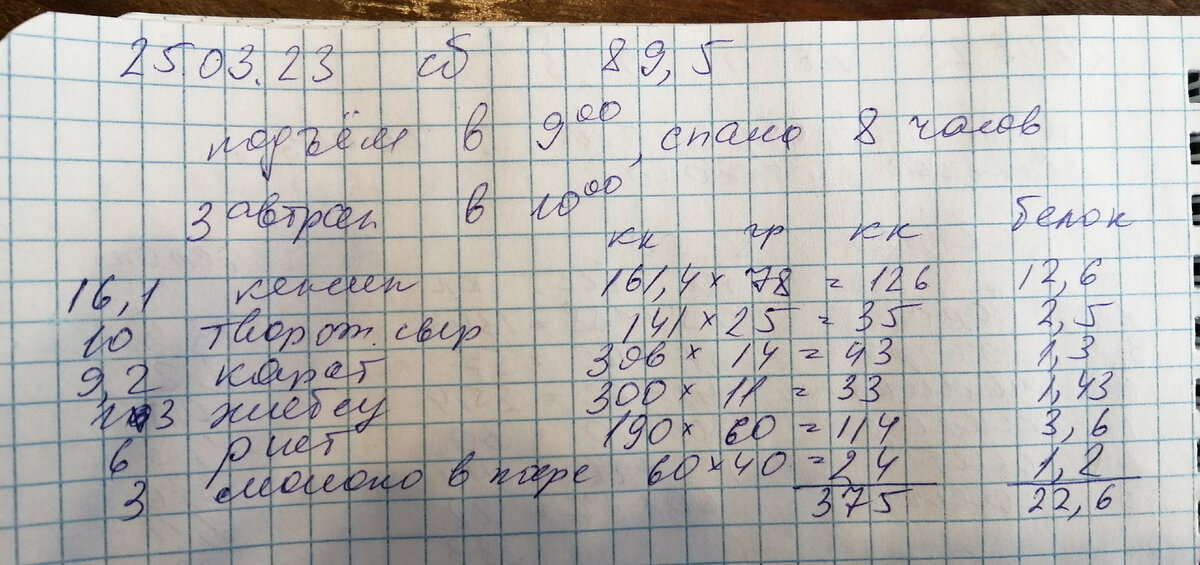 25.03.23 сб 89,5
подъём в 9⁰⁰, спала 8 часов
Завтрак в 10⁰⁰
кк гр кк белок
16,1 кекшп 161,4 × 78 = 126 12,6
10 творож. сыр 141 × 25 = 35 2,5
9,2 карат 306 × 14 = 43 1,3
3 хлебсу 300 × 11 = 33 1,43
6 риет 190 × 60 = 114 3,6
3 молоко в кофе 60 × 40 = 24 1,2
375 22,6